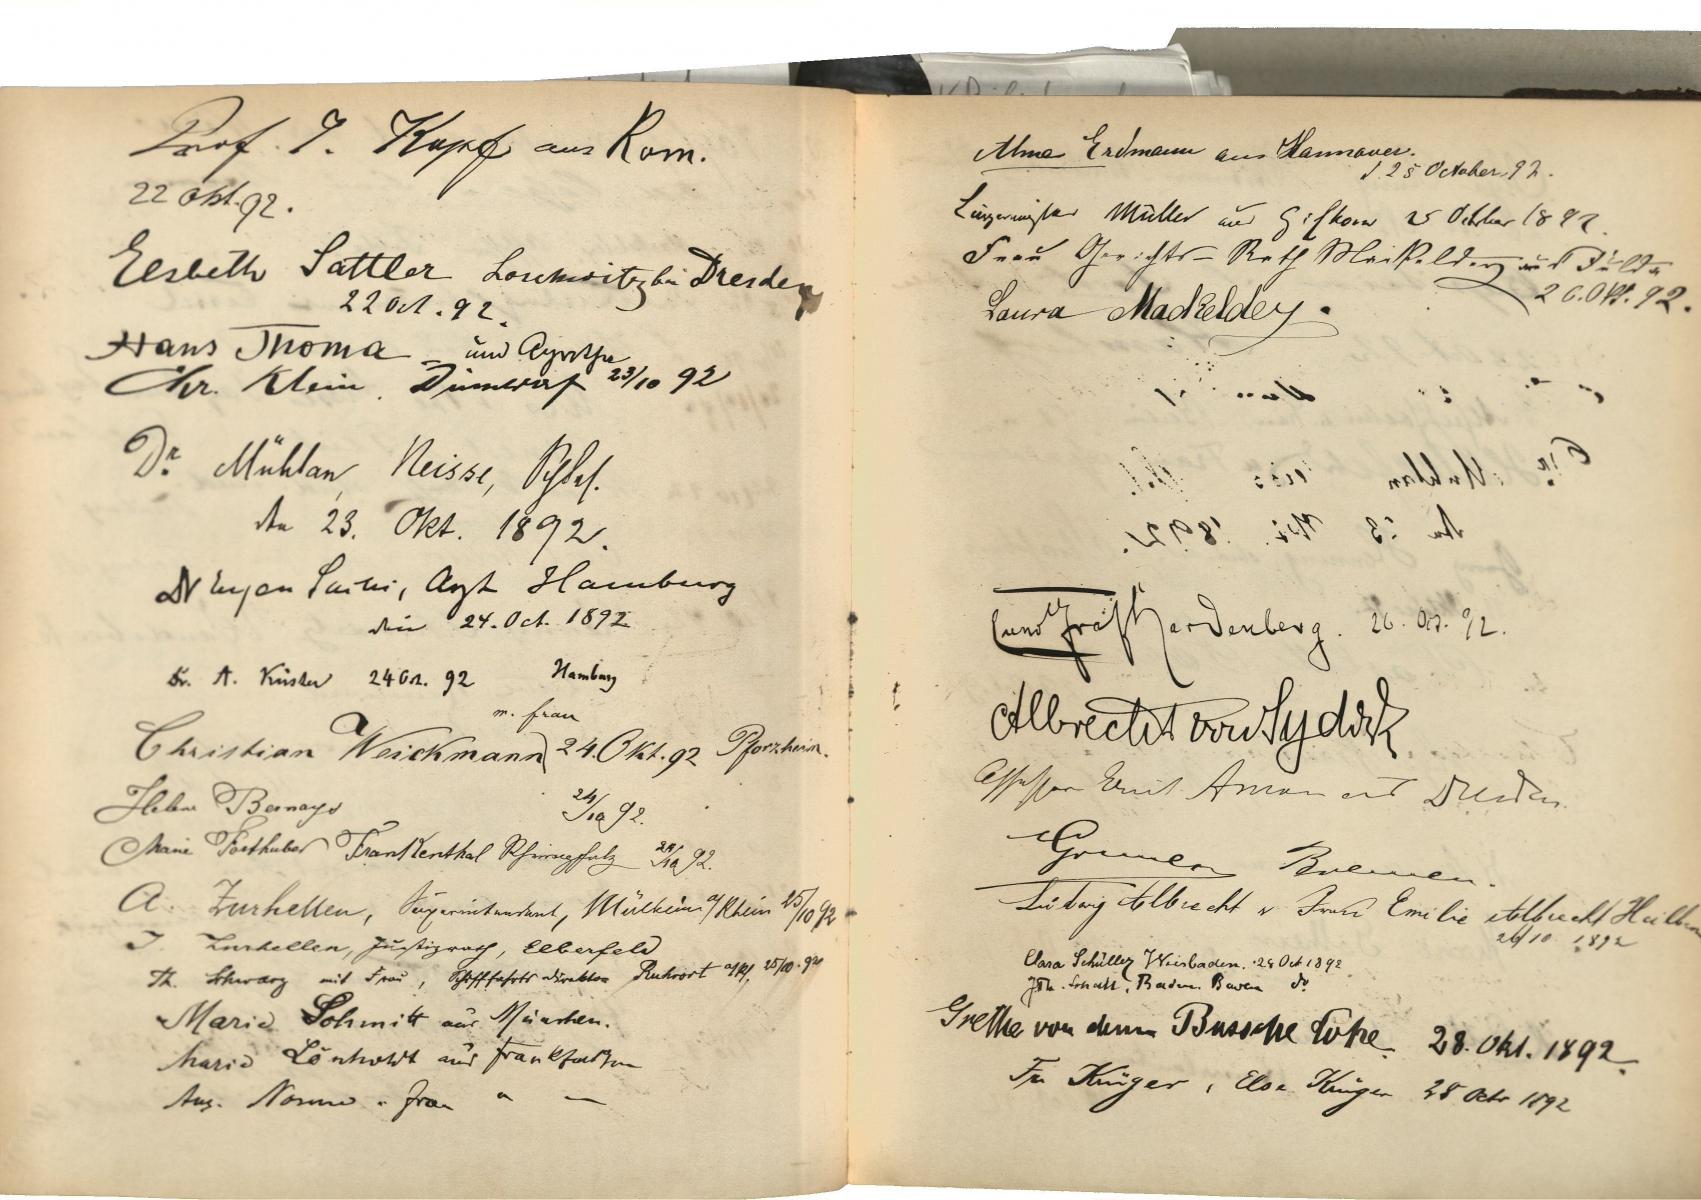 Prof. J. Kopf aus Rom.
22 Okt. 92.
Elsbeth Sattler Loschwitz bei Dresden
22 Oct. 92.
Hans Thoma und
Chr. Klein 23/10 92
Dr. Mühlan, Neisse,
den 23. Okt. 1892.
Dr Eugen Arzt Hamburg
den 24. Oct. 1892
Dr. A. Küster 24 Oct. 92 Hamburg
m. Frau
Christian Weickmann 24. Okt. 92 Pforzheim.
Helene Bernays 24/10 92.
Marie Forthuber Frankenthal Rheinpfalz 92.
A. Zurhellen, Superintendent, Mülheim a/Rhein 25/10 92
J. Zurhellen, Justizrath, Elberfeld
Th. Schwarz mit Frau, Schifffahrts Direktor Ruhrort 25/10. 92
Marie Schmitt aus München.
Marie Lönholdt aus Frankfurt
Aug. Frau
Alma Erdmann aus Hannover.
d. 25 October. 92.
Müller aus Gifhorn 25 October 1892.
Frau Gerichts-Rath Mackeldey aus Fulda
26. Okt. 92.
Laura Mackeldey.
Hardenberg. 26. Oct. 92.
Albrecht von Sydow
Assessor Emil aus Dresden
Bremen.
Ludwig Albrecht u Frau Emilie Albrecht
26/10 1892
Clara Schüller Wiesbaden. 28 Oct 1892
Baden Baden do
Grethe von dem Bussche 28. Okt. 1892.
Fr. Krüger, Elsa Krüger 28 Octr 1892